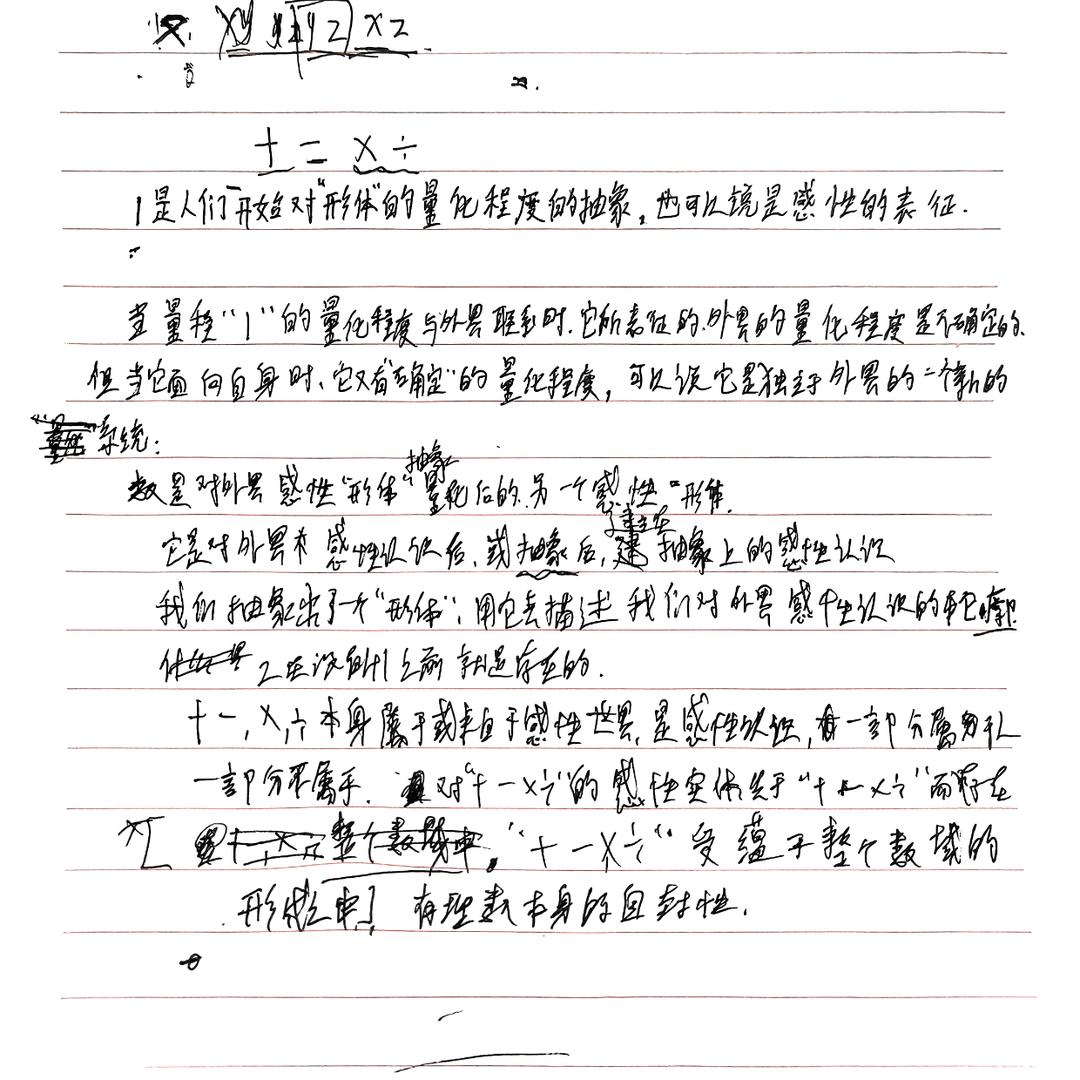 xy yz xz
+ = × ÷
1是人们一开始对“形体”的量化程度的抽象，也可以说是感性的表征.
当量程“1”的量化程度与外界联系时.它所表征的.外界的量化程度是不确定的.
但当它面向自身时、它又有“确定”的量化程度，可以说它是独立于外界的一个的
系统：
数是对外界感性“形体”抽象量化后的.另一个感性“形体.
它是对外界有感性认识后，或抽象后，建立在抽象上的感性认识
我们抽象出了一个“形体”；用它去描述我们对外界感性认识的
2在没有1之前就是存在的.
+ - , × , ÷ 本身属于或来自于感性世界，是感性认识，有一部分属
一部分不属于. 对“+ - × ÷”的感性实体先于“+ - × ÷”而存在
“+ - × ÷“ 受蕴于整个数域的
形成之中] 有理数本身的自封性.